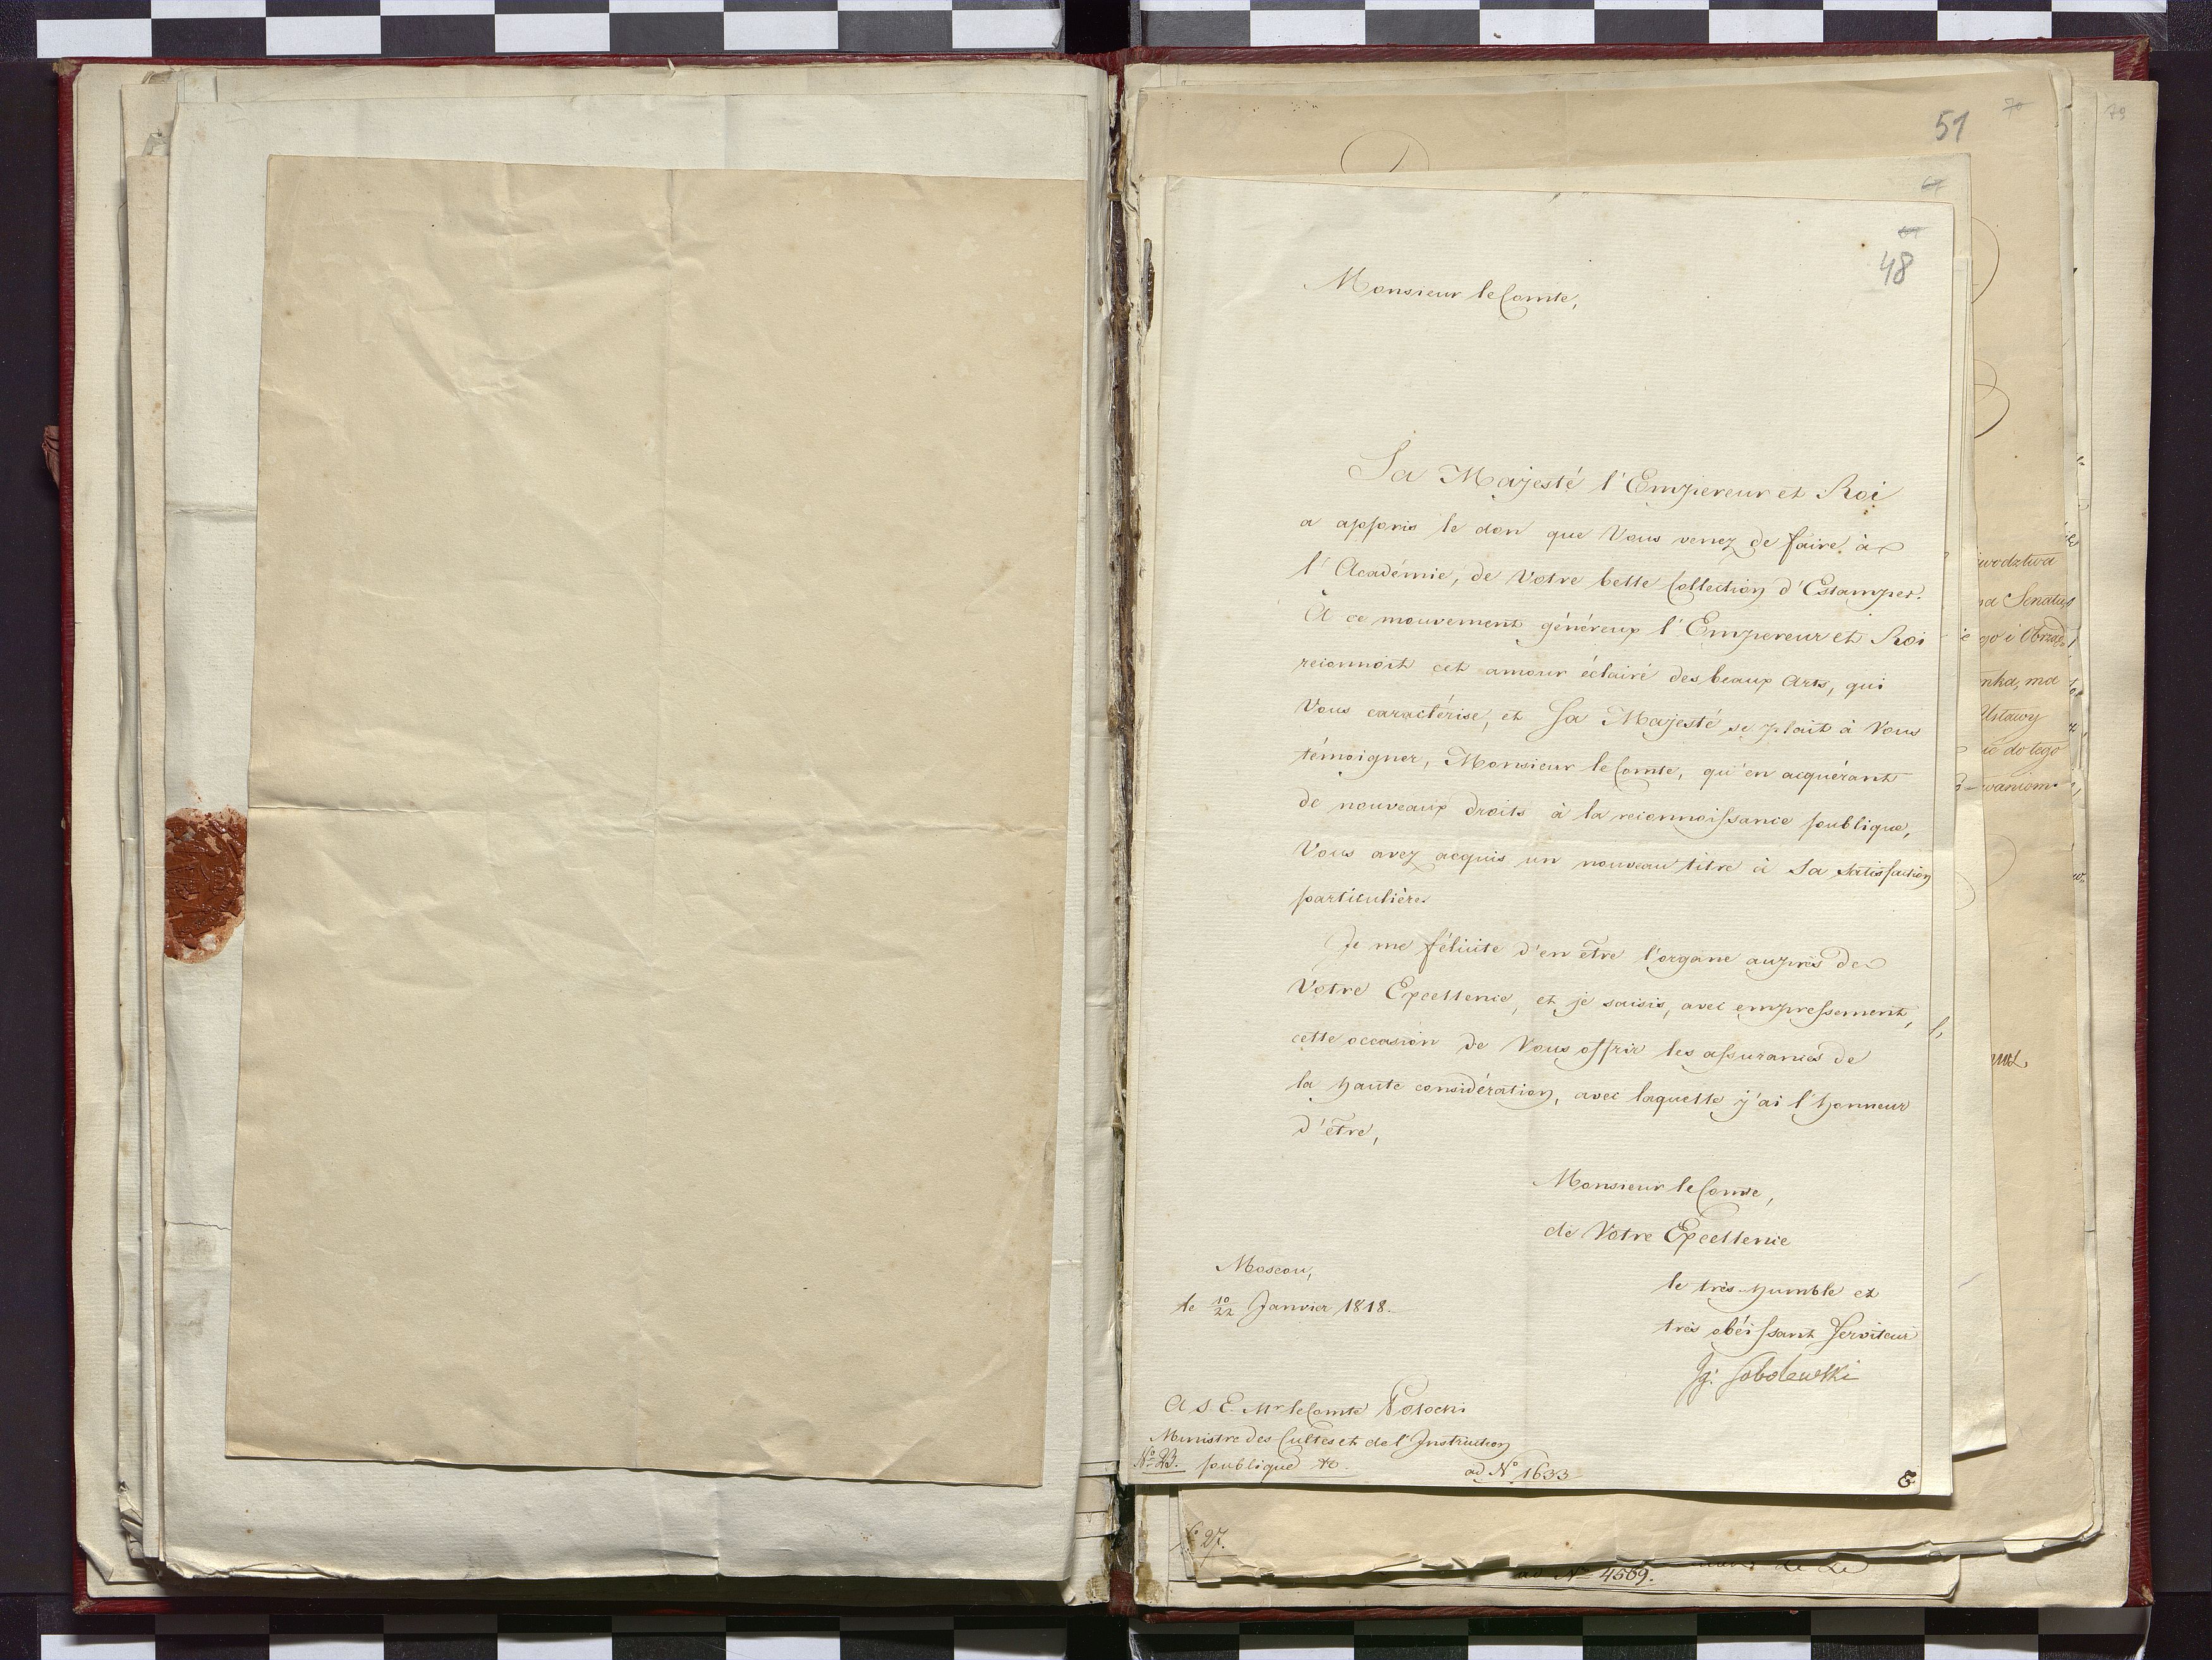 51
70
79
67
48
Monsieur le Comte,
Sa Majesté l'Empereur et Roi
a appris le don que Vous venez de faire à
l'Académie, de Votre belle Collection d'Estampes.
À ce mouvement généreux l'Empereur et Roi
reconnoit cet amour éclairé des beaux Arts, qui
Vous caractérise, et Sa Majesté se plait à Vous
témoigner, Monsieur le Comte, qu'en acquérant
de nouveaux droits à la reconnoissance publique,
Vous avez acquis un nouveau titre à Sa Satisfaction
particulière.
Je me félicite d'en être l'organe auprès de
Votre Excellence, et je saisis, avec empressement,
cette occasion de Vous offrir les assurances de
la haute considération, avec laquelle j'ai l'honneur
d'être,
Monsieur le Comte,
de Votre Excellence
le très-humble et
très obéissant Serviteur
Ig. Sobolewski
Moscou,
le 10/22 Janvier 1818.
A S. E. Mr le Comte Potocki
Ministre des Cultes et de l'Instruction
publique &c.
No 23.
ad No 1633
E
wodztwa
na Senatu
ego i Obrzęd
nka, ma
Ustawy
ie do tego
waniem
27.
ad No 4569.
de Le